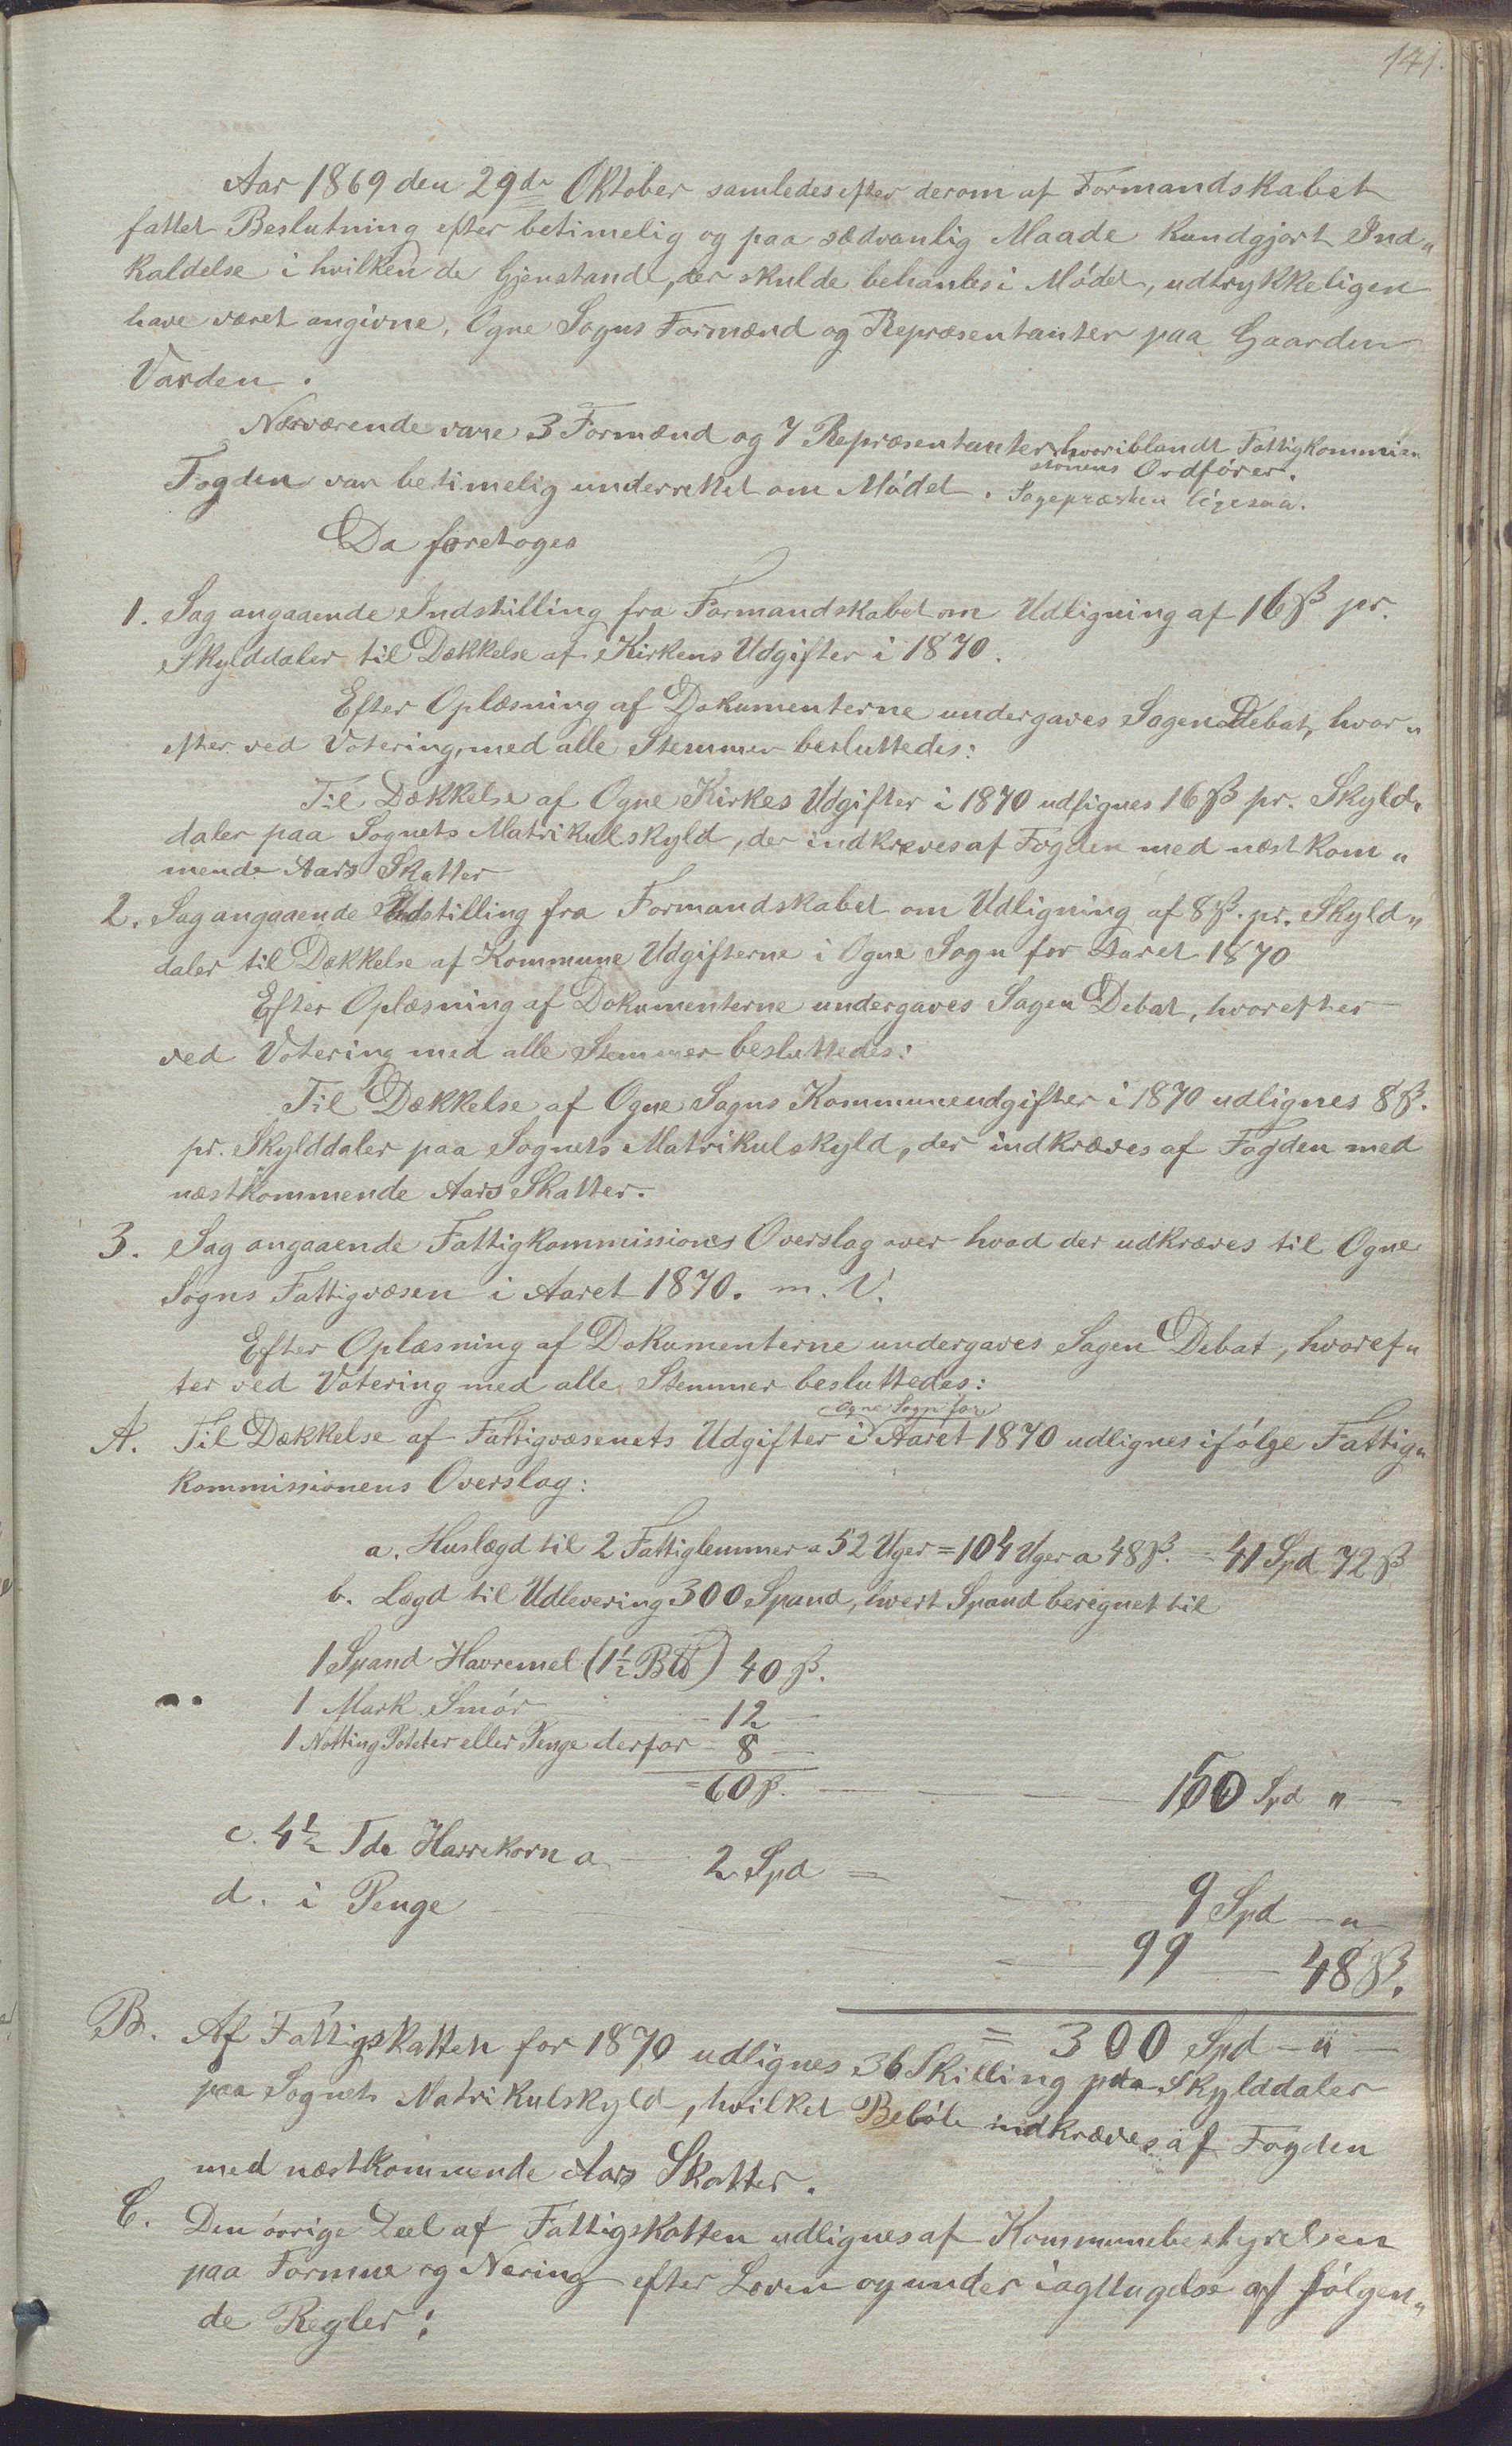 141.
Aar 1869 den 29de Oktober samledes efter derom af Formandskabet
fattet Beslutning efter betimelig og paa sædvanlig Maade kundgjort Ind„
kaldelse i hvilken de Gjenstande, der skulde behanles i Mödet, udtrykkeligen
have været angivne, Ogne Sogns Formænd og Repræsentanter paa Gaarden
Varden.
Nærværende vare 3 Formænd og 7 Repræsentanter, hvoriblandt Fattigkommis„
sionens Ordförer.
Fogden var betimelig underrettet om Mödet. Sognepræsten ligesaa.
Da foretoges
1. Sag angaaende Indstilling fra Formandskabet om Udligning af 16 ß pr.
Skylddaler til Dækkelse af Kirkens Udgifter i 1870.
Efter Oplæsning af Dokumenterne undergaves Sagen Debat, hvor„
efter ved Votering, med alle Stemmer besluttedes:
Til Dækkelse af Ogne Kirkes Udgifter i 1870 udlignes 16 ß pr. Skyld„
daler paa Sognets Matrikulskyld, der indkræves af Fogden med næstkom„
mende Aars Skatter
2. Sag angaaende Indstilling fra Formandskabet om Udligning af 8 ß. pr. Skyld„
daler til Dækkelse af Kommune Udgifterne i Ogne Sogn for Aaret 1870
Efter Oplæsning af Dokumenterne undergaves Sagen Debat, hvorefter
ved Votering med alle Stemmer besluttedes:
Til Dækkelse af Ogne Sogns Kommuneudgifter i 1870 udlignes 8 ß.
pr. Skylddaler paa Sognets Matrikulskyld, der indkræves af Fogden med
næstkommende Aars Skatter.
3. Sag angaaende Fattigkommissiones Overslag over hvad der udkræves til Ogne
Sogns Fattigvæsen i Aaret 1870. m. V.
Efter Oplæsning af Dokumenterne undergaves Sagen Debat, hvoref„
ter ved Votering med alle Stemmer besluttedes:
Ogne Sogn for
A. Til Dækkelse af Fattigvæsenets Udgifter i Aaret 1870 udlignes ifölge Fattig„
kommissionens Overslag:
a. Huslægd til 2 Fattiglemmer a 52 Uger = 104 Uger a 48 ß. = 41 Spd 72 ß
b. Lægd til Udlevering 300 Spand, hvert Spand beregnet til
1 Spand Havremel (1½ B℔) 40 ß.
1 Mark Smör - 12 -
1 Notting Poteter eller Penge derfor - 8 -
= 60 ß. - - - 150 Spd „ -
c. 4½ Tde Havrekorn a - 2 Spd = - - 9 Spd - „ -
d. i Penge - - - 99 - 48 ß.
= 300 Spd - „ -
B. Af Fattigskatten for 1870 udlignes 36 Skilling paa Skylddaler
paa Sognets Matrikulskyld, hvilket Belöb indkræves af Fogden
med næstkommende Aars Skatter.
C. Den övrige Deel af Fattigskatten udlignes af Kommunebestyrelsen
paa Formue og Næring efter Loven og under iagttagelse af fölgen„
de Regler: